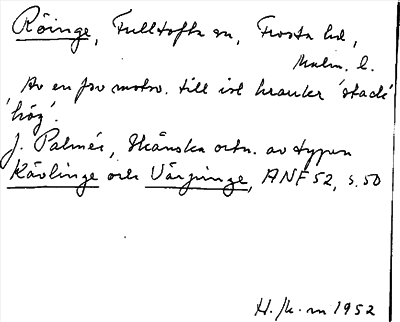 Röinge, Fulltofta sn, Frosta hd,
Malm. l.
Av en fsv motsv. till isl hraukr 'stack'
'hög'.
J. Palmér, Skånska ortn. av typen
Kävlinge och Värpinge, ANF 52, s. 50
H. /k-m 1952